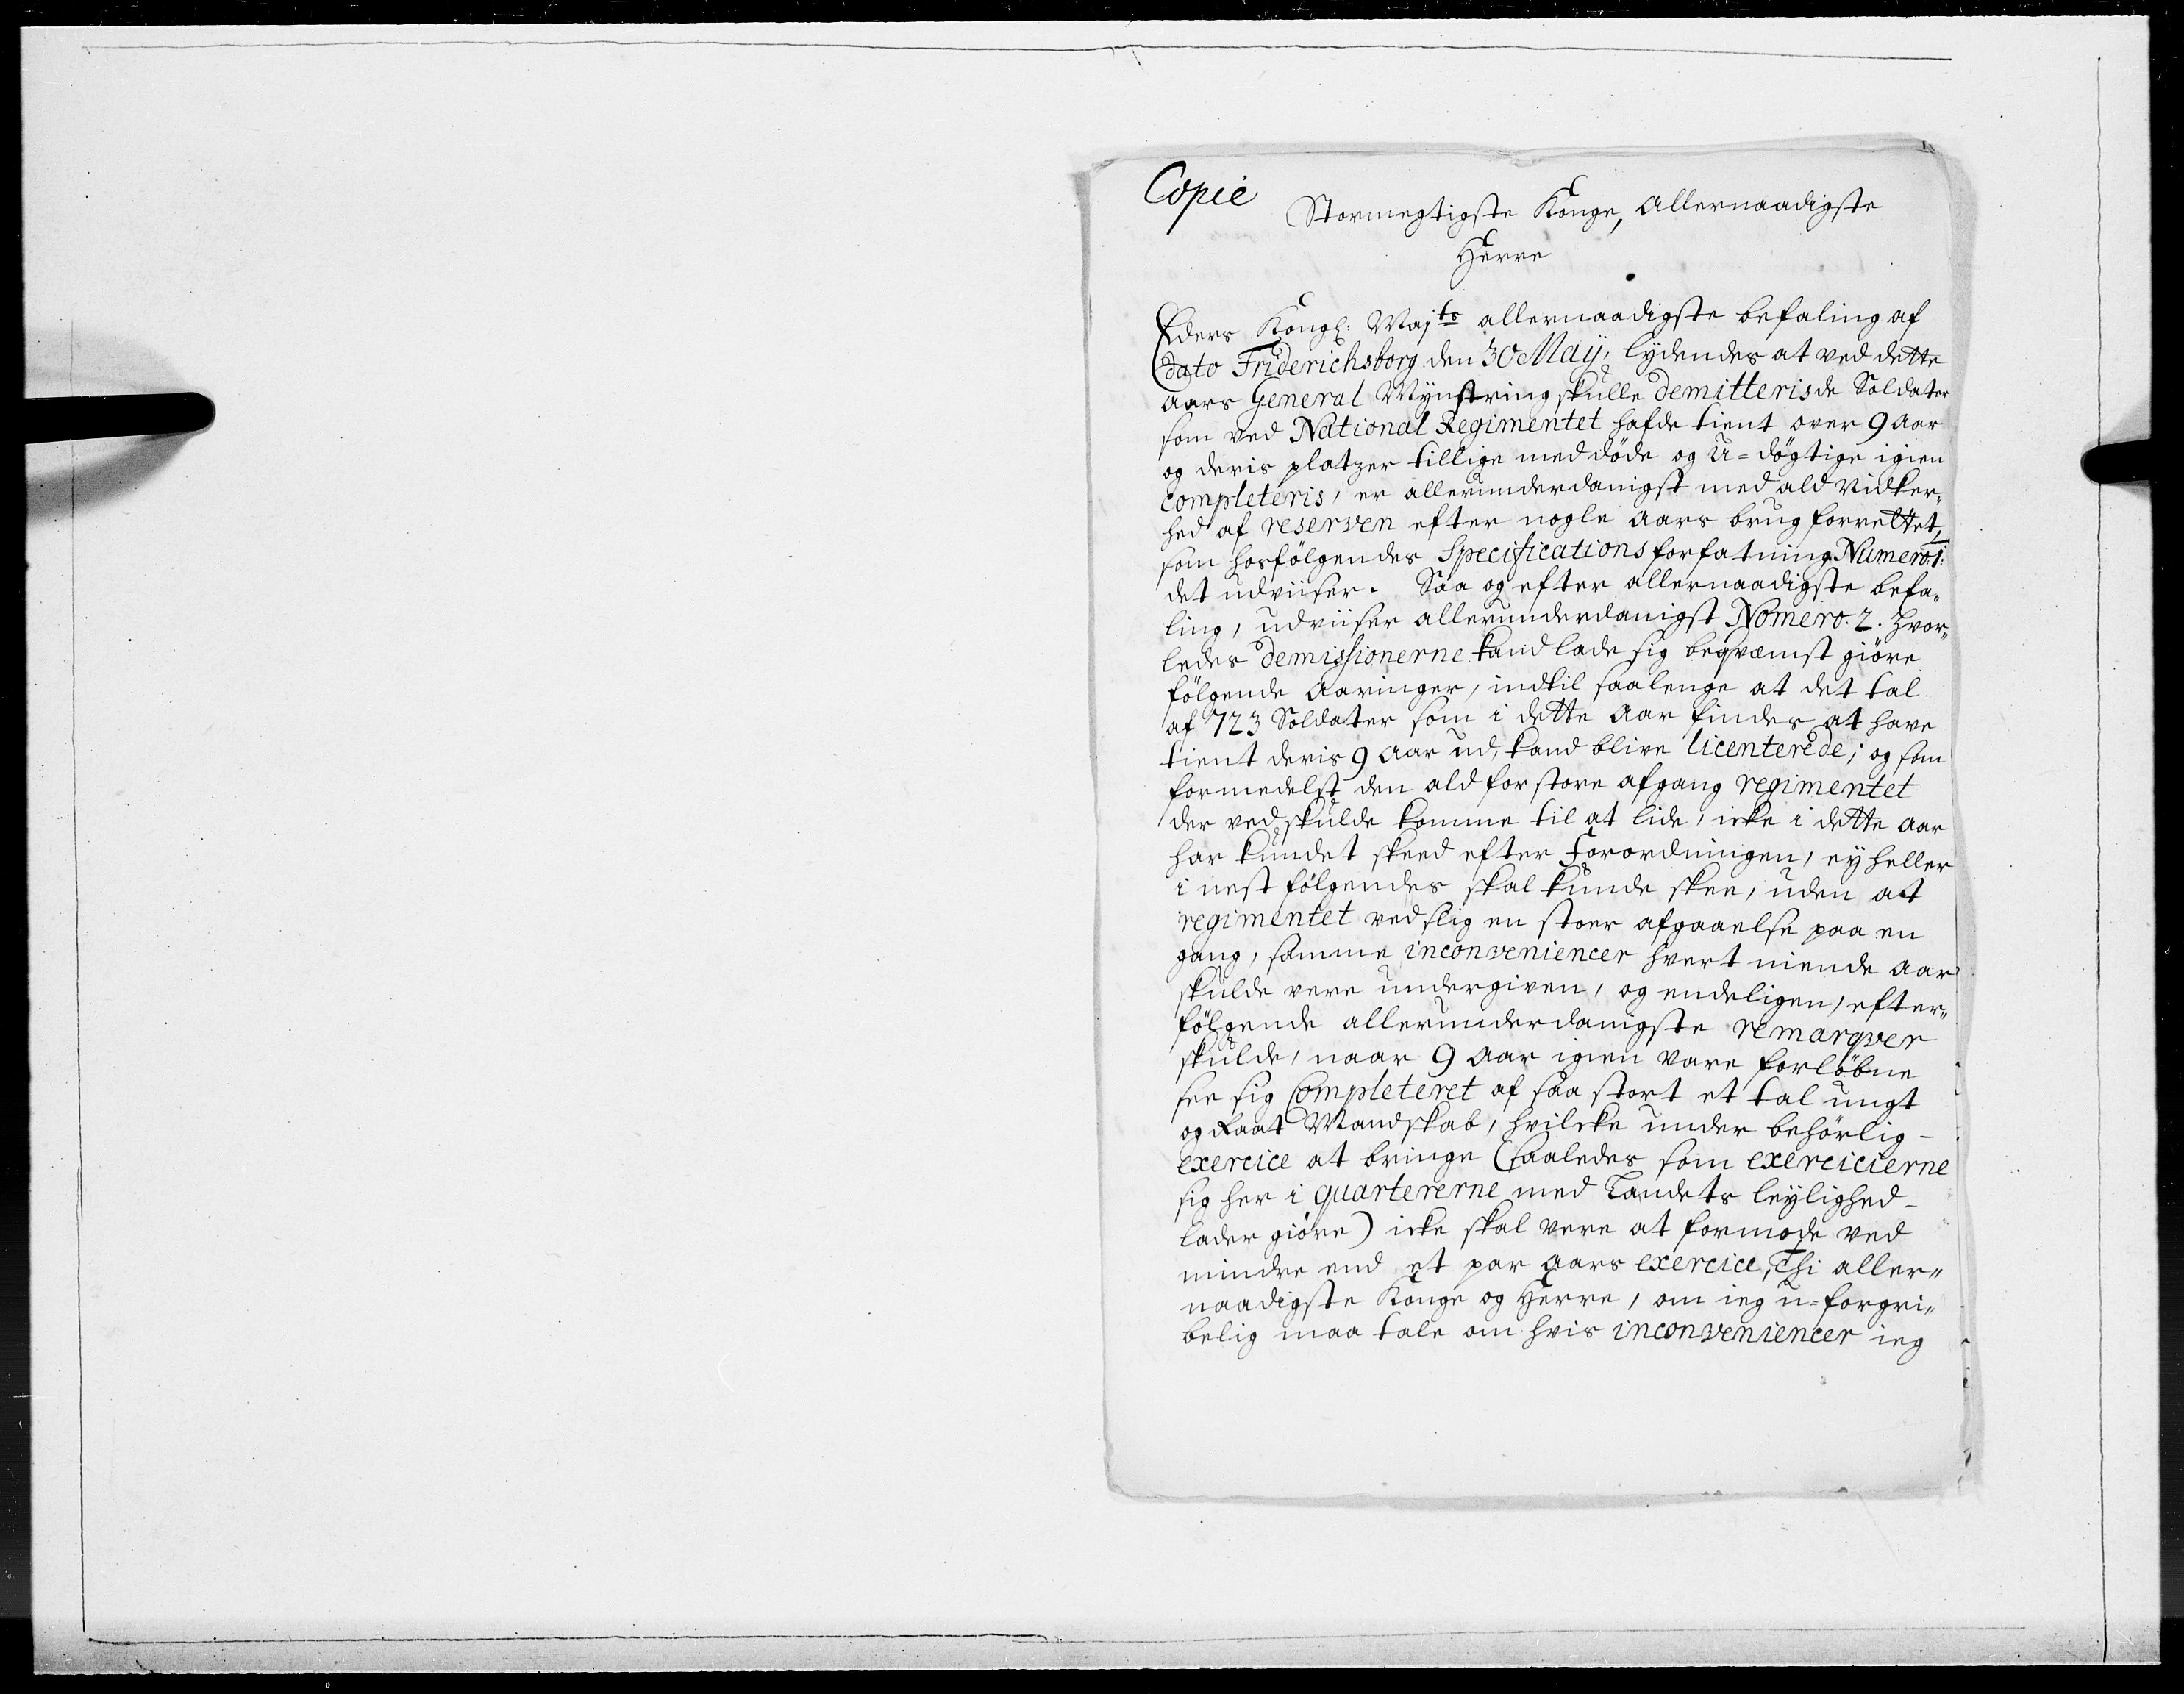 Copie
Stormegtigste Konge, Allernaadigste
Herre
Eders Kongl: Majts allernaadigste befaling af
dato Friderichsborg den 30 Maÿ, lÿdendes at ved dette
Aars General Mÿnstring skulle demitteris de Soldater
som ved National Regimentet hafde tient over 9 Aar
og deris platzer tillige med döde og U=dögtige igien
completeris, er allerunderdanigst med ald Vidker„
hed af reserven efter nogle Aars brug forrettet,
som hosfölgendes Specifications forfatning Numero: 1:
det udviiser. Saa og efter allernaadigste befa„
ling, udviiser allerunderdanigst Nomero. 2. Hvor„
ledes demissionerne kand lade sig beqvæmst giöre
fölgende Aaringer, indtil saalenge at det tal
af 723 Soldater som i dette Aar findes at have
tient deris 9 Aar ud, kand blive licenterede; og som
formedelst den ald for store afgang regimentet
der ved skulde komme til at lide, icke i dette Aar
har kundet skeed efter Forordningen, eÿ heller
i nest fölgendes skal kunde skee, uden at
regimentet ved slig en stoer afgaaelse paa en
gang, samme inconveniencer hvert niende Aar
skulde vere undergiven, og endeligen, efter„
fölgende allerunderdanigste remarqver
skulde, naar 9 Aar igien vare forlöbne
see sig Completeret af saa stort et tal ungt
og Raat Mandskab, hvilcke under behörlig-
exercice at bringe (saaledes som exercicierne
sig her i quartererne med Landets leÿlighed-
lader giöre) icke skal vere at formode ved
mindre end et par Aars exercice, Thi aller„
naadigste Konge og Herre, om ieg u=forgri„
belig maa tale om hvis inconveniencer ieg